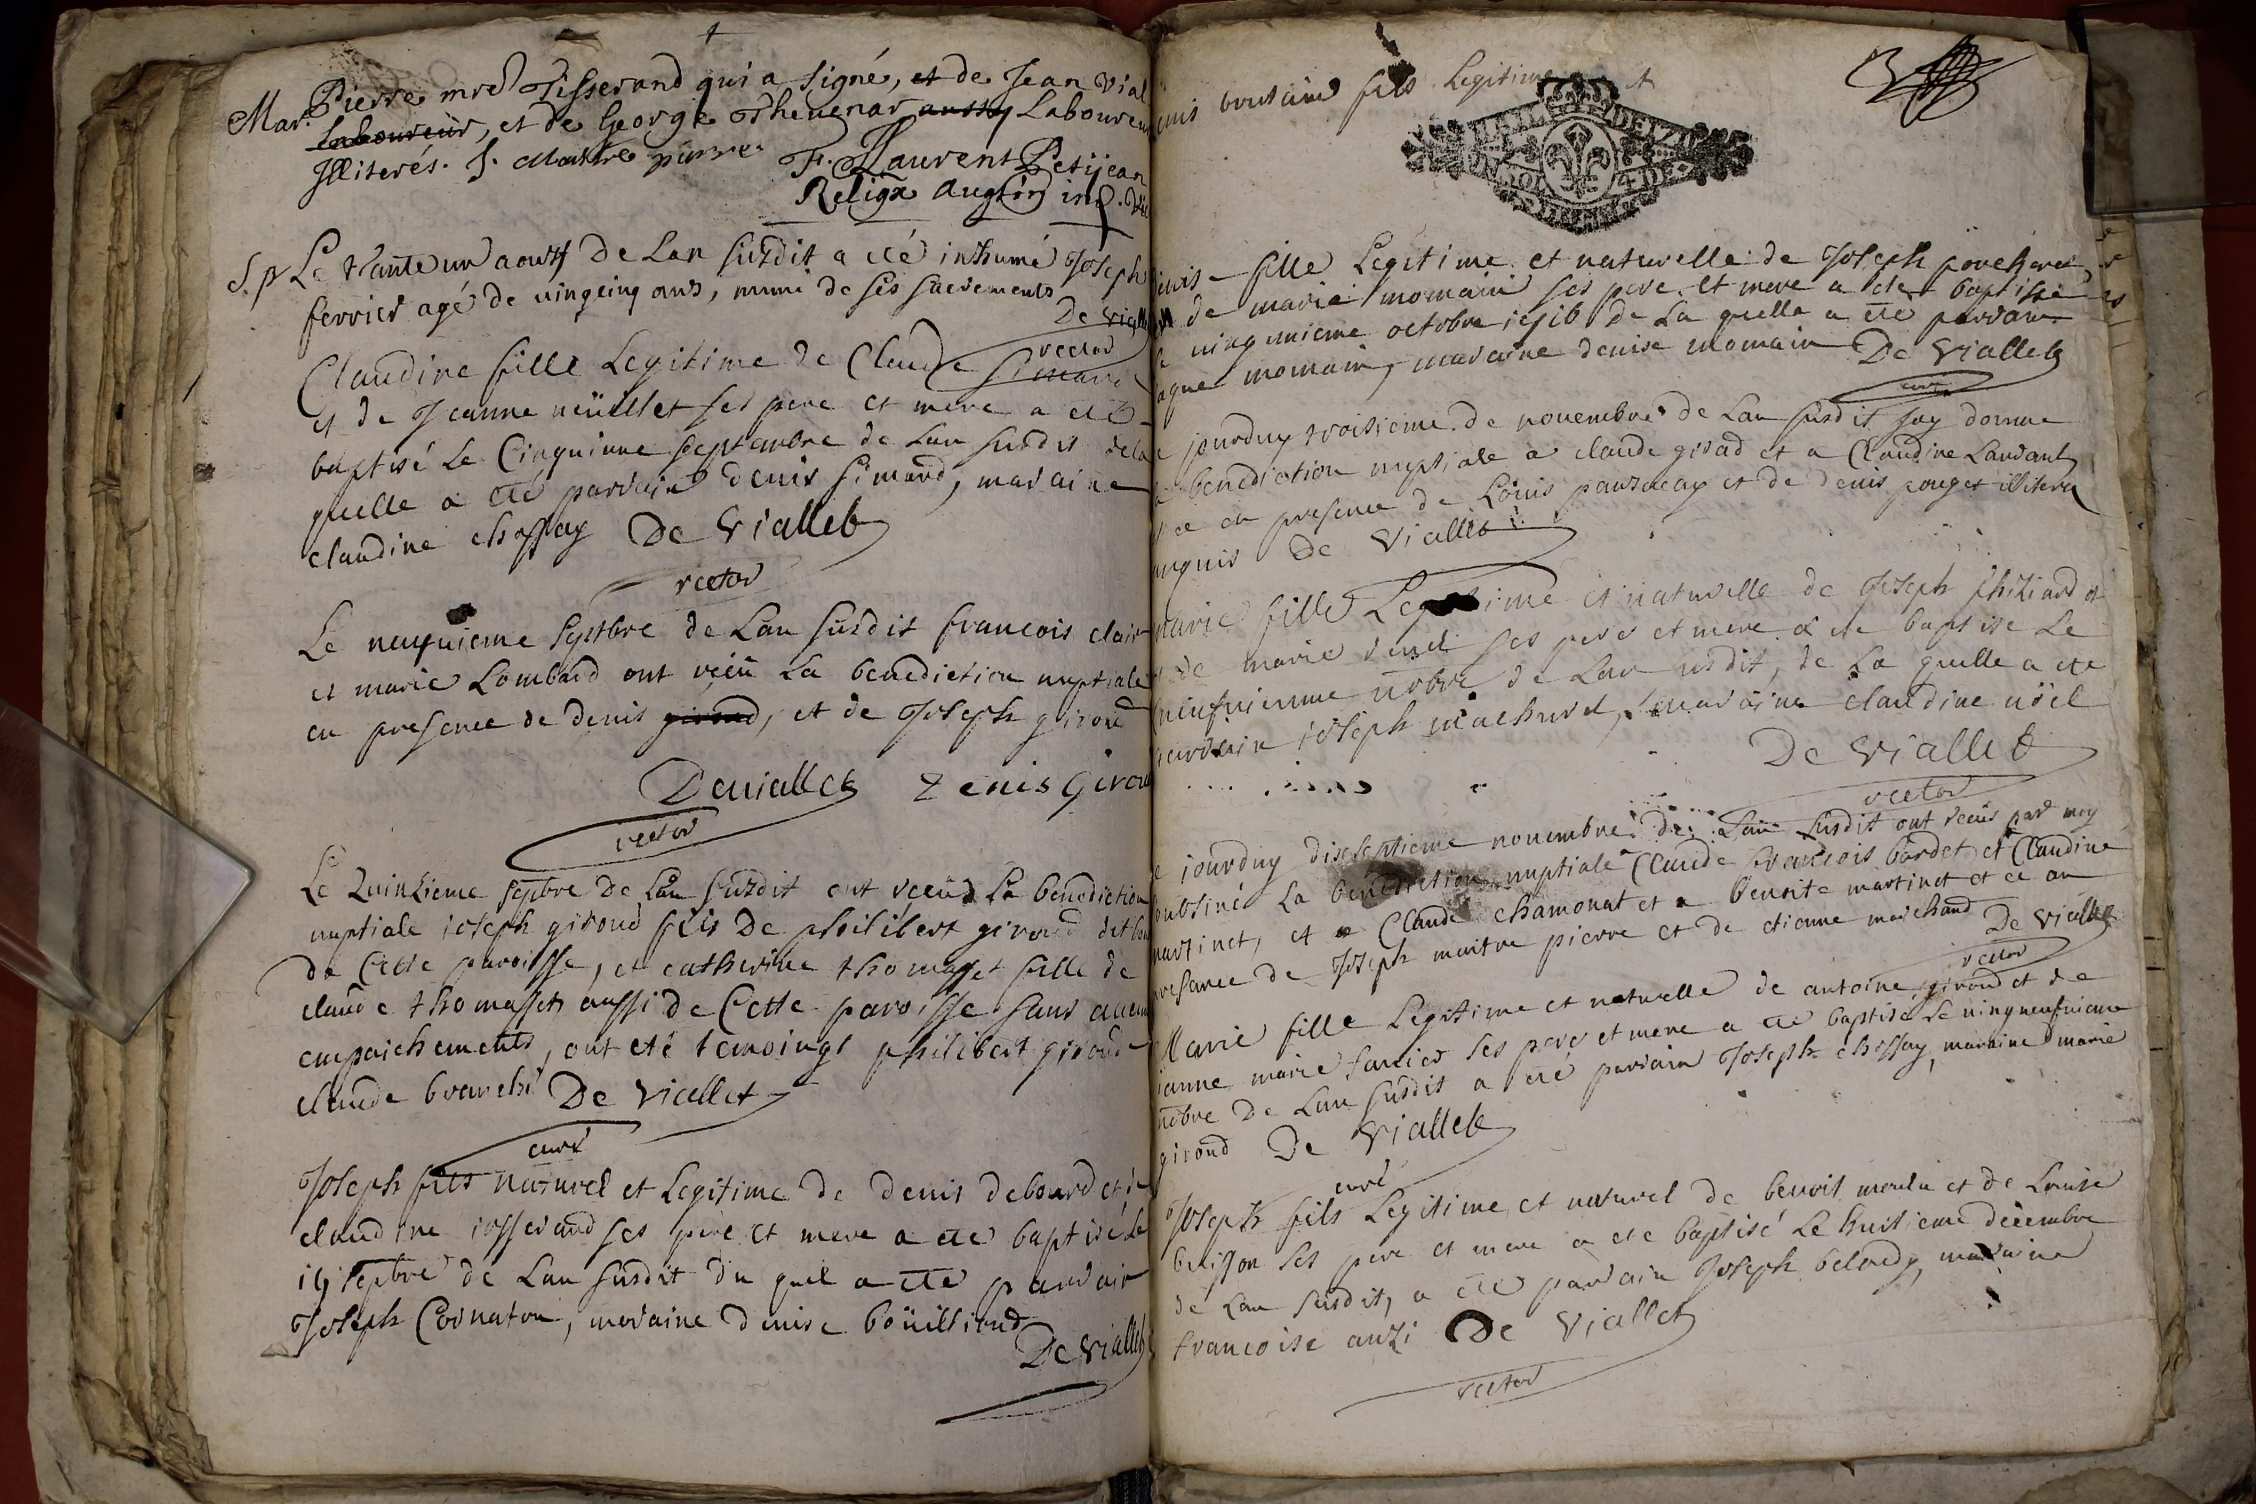 Mar. Pierre mre Tisserand qui a signé, et de Jean Vial
laboureur, et de George Thevenar aussy Laboureur
Illiterés. J. Maitre pierre F. Laurent Petijean
Religx Augtin
S. p Le trante un aoust de Lan susdit a eté inhumé Joseph
ferrier agé de vingcinq ans, muni de ses sacrements De Viallet
rector
Claudine fille Legitime de Claude Simard
et de Jeanne neüillet ses pere et mere a eté
baptisé Le Cinquieme septembre de Lan susdit de la
quelle a eté parrain denis Simard, maraine
claudine chossay De Viallet
rector
Le neufvieme Septbre de Lan susdit francois clair
et marie Lombard ont reçû La benediction nuptiale
en presence de denis giroud, et de Joseph giroud
Deviallet Denis Giroud
rector
Le Quinzieme septbre de Lan susdit ont reçûs La benediction
nuptiale ioseph giroud fils de philibert giroud dit
de Cette paroisse, et catherine thomasset fille de
claude thomasset aussi de Cette paroisse sans aucun
empaichements, ont eté temoings philibert giroud
claude De Viallet
curé
Joseph fils naturel et Legitime de denis debourd et de
claudine iosserand ses pere et mere a eté baptisé Le
septbre de Lan susdit du quel a eté parrain
Joseph Cornaton, maraine denise boüillioud
De Viallet
fils Legitime
denise fille Legitime et naturelle de Joseph
de marie momain ses pere et mere a eté baptisée
vingunieme octobre de La quelle a eté parrain
momain, maraine denise momain De Viallet
curé
jourduy troisieme de novembre de Lan susdit jay donné
La benediction nuptiale a claude girad et a Claudine
et ce en presence de Loüis et de denis pouget illiteré
enquis De Viallet
Marie fille Legitime et naturelle de Joseph et
de marie ses pere et mere a eté baptisé Le
neufvieme novbre de Lan susdit, de La quelle a eté
parrain ioseph, maraine claudine
De Viallet
rector
ce iourduy dixseptieme novembre de Lan susdit ont reçûs par moy
soubsiné La benediction nuptiale Claude francois bordet et Claudine
martinet, et Claude chamonat et a benoite martinet et ce en
presance de Joseph maitre pierre et de etienne marchand De Viallet
rector
Marie fille Legitime et naturelle de antoine giroud et de
ianne marie ses pere et mere a eté baptisé Le vingneufvieme
novbre de Lan susdit a eté parrain Joseph chossay, maraine marie
giroud De Viallet
curé
Joseph fils Legitime et naturel de benoit moulin et de Louise
buisson ses pere et mere a eté baptisé Le huitieme décembre
de Lan susdit, a eté parrain Joseph, maraine
francoise De Viallet
rector